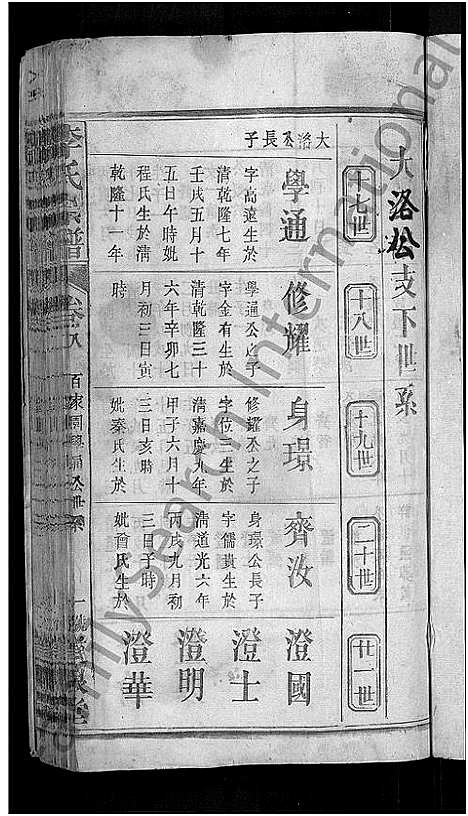 大洛公支下世系
十七世
十八世
十九世
二十世
廿一世
大洛公長子
學通
字高遠生於
清乾隆七年
壬戌五月十
五日午時妣
程氏生於清
乾隆十一年
修耀
學通公之子
字金有生於
清乾隆三十
六年辛卯七
月初三日寅
時
身璟
修耀公之子
字位三生於
清嘉慶九年
甲子六月十
三日亥時
妣秦氏生於
齊汝
身璟公長子
字儒貴生於
清道光六年
丙戌九月初
三日子時
妣曾氏生於
澄國
澄士
澄明
澄華
李氏宗譜
卷八
百家園學通公世系
一
Family Search International